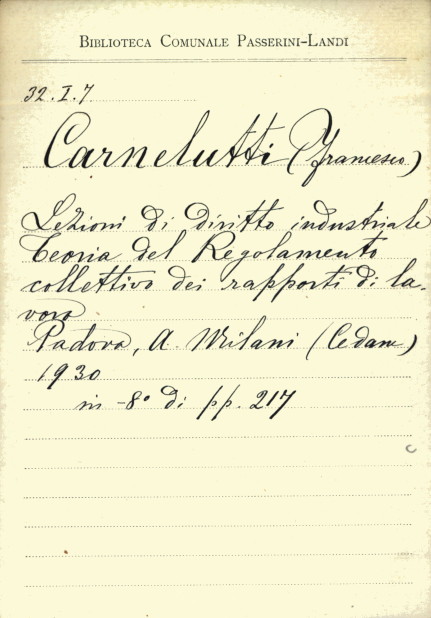 BIBLIOTECA COMUNALE PASSERINI-LANDI
32.I.7
Carnelutti (Francesco)
Lezioni di diritto industriale
Teoria del Regolamento
collettivo dei rapporti di la-
voro
Padova, A. Milani (Cedam)
1930
in -8° di pp. 217